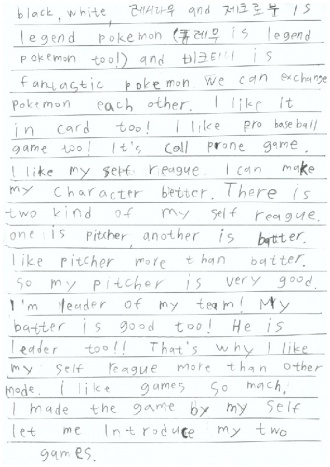 black, white, 레시라무 and 제크로무 is
legend pokemon (큐레무 is legend
pokemon too!) and 비크티니 is
fantastic pokemon we can exchange
pokemon each other. I like it
in card too! I like pro baseball
game too! It's call prone game.
I like my self reague. I can make
my character better. There is
two kind of my self reague.
one is pitcher, another is batter.
like pitcher more than batter.
So my pitcher is very good.
I'm leader of my team! My
batter is good too! He is
leader too!! That's why I like
my self reague more than other
mode. I like games so mach,
I made the game by my self
let me Introduce my two
games.